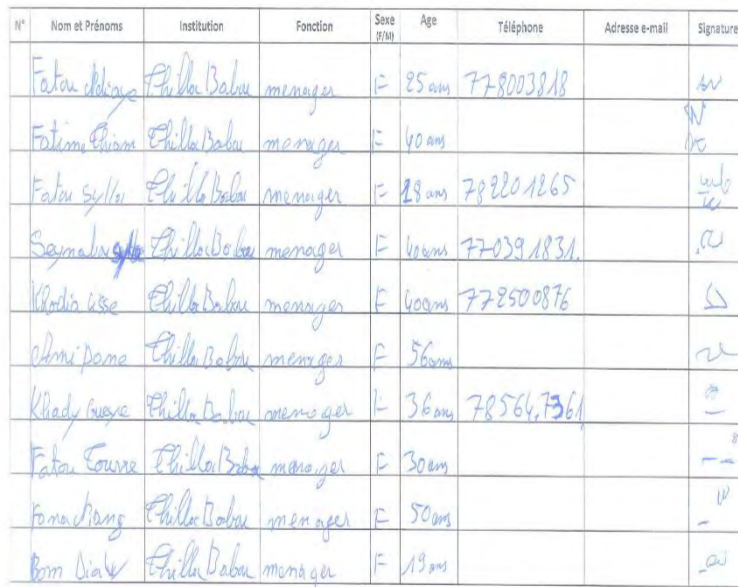 N° Nom et Prénoms Institution Fonction Sexe (F/M) Age Téléphone Adresse e-mail Signature
Fatou Ndiaye Thilla Babou menager F 25 ans 778003818
Fatime Thiam Thilla Babou menager F 40 ans
Fatou Sylla Thilla Babou menager F 18 ans 782201265
Seynabou Sylla Thilla Babou menager F 40 ans 770391831.
Khodia Cisse Thilla Babou menager F 40 ans 772500876
Ami Dome Thilla Babou menager F 56 ans
Khady Gueye Thilla Babou menager F 36 ans 785647361
Fatou Tourre Thilla Babou menager F 30 ans
Thilla Babou menager F 50 ans
Bom Thilla Babou menager F 19 ans